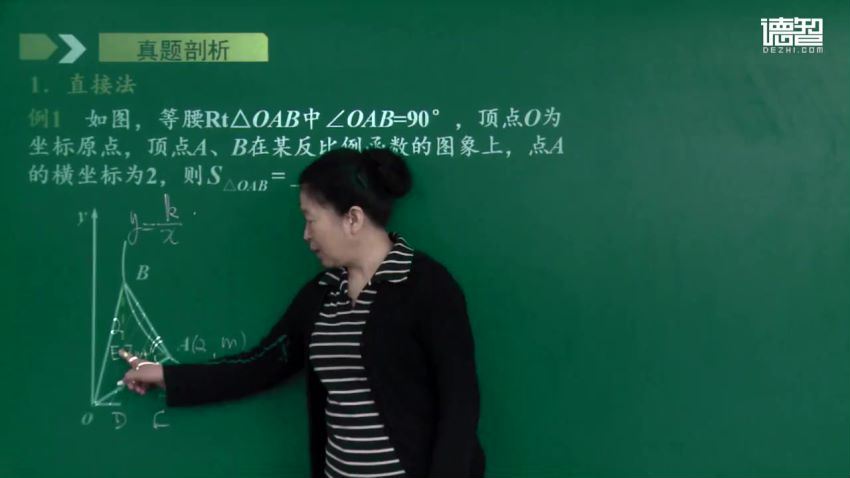 德智
DEZHI.COM
真题剖析
1. 直接法
例1 如图，等腰Rt△OAB中∠OAB=90°，顶点O为
坐标原点，顶点A、B在某反比例函数的图象上，点A
的横坐标为2，则S△OAB=
y
y=k/x
B
2
A(2,m)
E
O
D
C